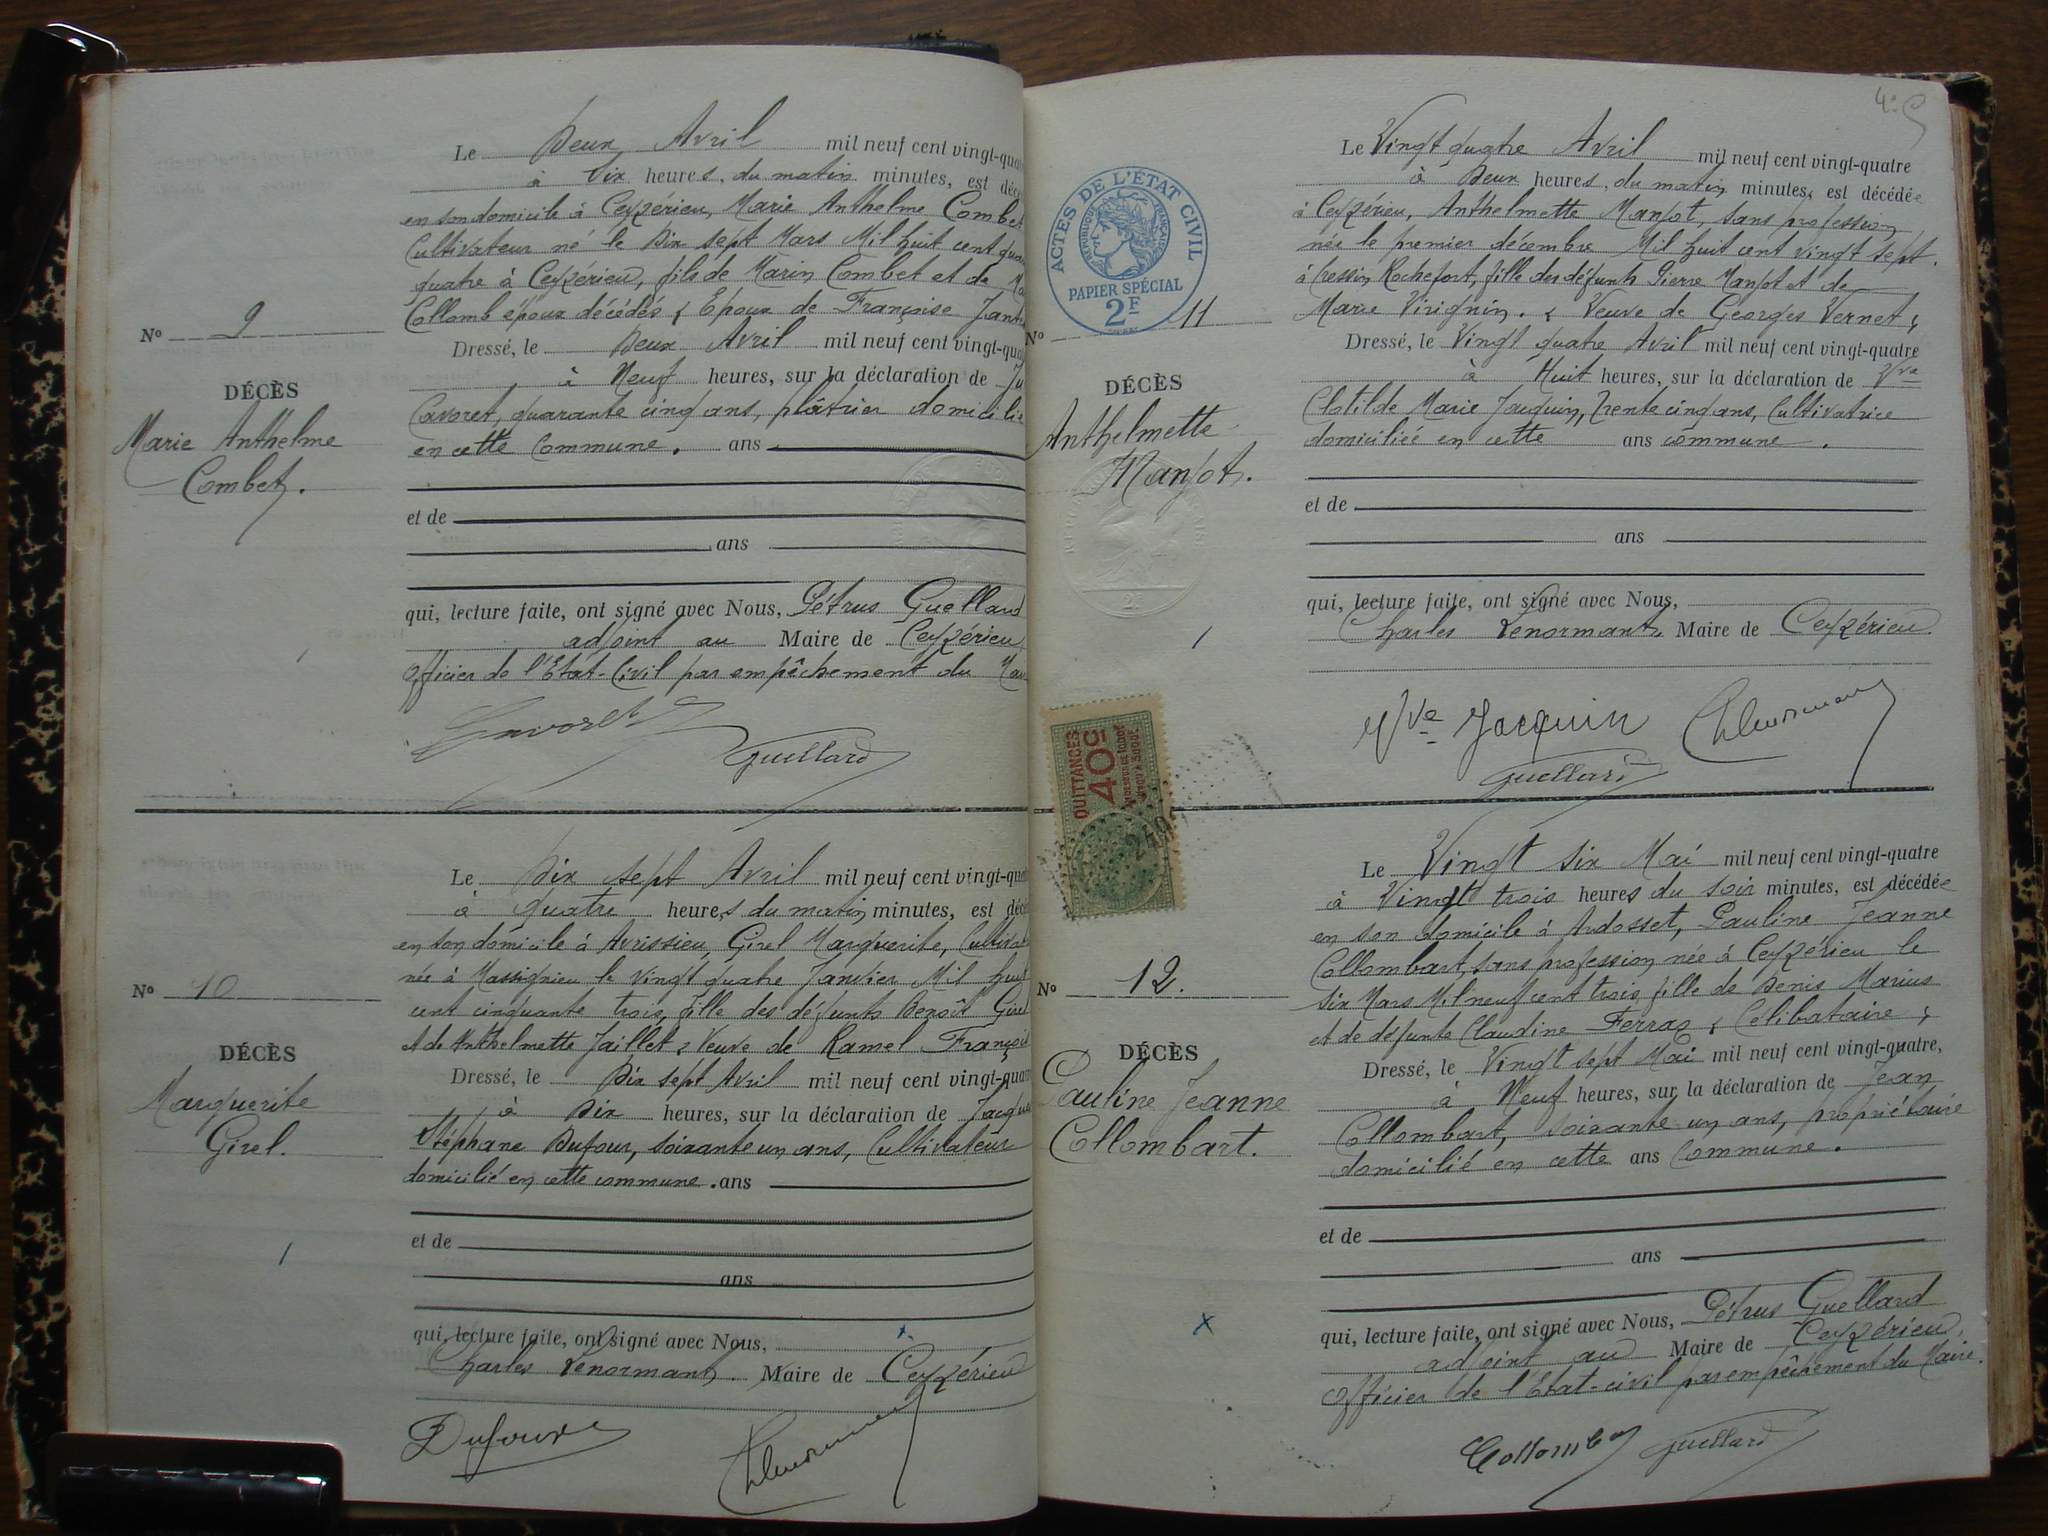 Le Deux Avril mil neuf cent vingt-qua
à Dix heures, du matin minutes, est décé
en son domicile à Ceyzérieu, Marie Anthelme Combet
Cultivateur né le Dix sept Mars Mil huit cent qua
quatre à Ceyzérieu, fils de Marin Combet et de Ma
Collomb époux décédés & Epoux de Françoise Jant
Nº 9
Dressé, le Deux Avril mil neuf cent vingt-qua
à Neuf heures, sur la déclaration de Ju
DÉCÈS
Cavoret, quarante cinq ans, plâtrier domicilié
Marie Anthelme
en cette Commune. ans
Combet.
et de
ans
qui, lecture faite, ont signé avec Nous, Pétrus Guelland
adjoint au Maire de Ceyzérieu
Officier de l'Etat-Civil par empêchement du Mai
Cavoret
Guelland
Le Dix sept Avril mil neuf cent vingt-quat
à Quatre heures du matin minutes, est décé
en son domicile à Avrissieu, Girel Marguerite, Cultivat
née à Massignieu le Vingt quatre Janvier Mil huit
Nº 10
cent cinquante trois, fille des défunts Benoît Girel
et de Anthelmette Jaillet & Veuve de Ramel François
DÉCÈS
Dressé, le Dix sept Avril mil neuf cent vingt-quat
à Dix heures, sur la déclaration de Jacques
Marguerite
Stéphane Dufour, soixante un ans, Cultivateur
Girel.
domicilié en cette commune. ans
et de
ans
qui, lecture faite, ont signé avec Nous,
Charles Lenormant. Maire de Ceyzérieu
Dufour
CLenormant
4e
Le Vingt quatre Avril mil neuf cent vingt-quatre
à Deux heures, du matin minutes, est décédée
à Ceyzérieu, Anthelmette Manjot, sans profession
née le premier décembre Mil huit cent vingt sept
à Cressin Rochefort, fille des défunts Pierre Manjot et de
Marie Virignin. & Veuve de Georges Vernet &
ACTES DE L'ÉTAT CIVIL
RÉPUBLIQUE FRANÇAISE
PAPIER SPÉCIAL
2F
Nº 11
Dressé, le Vingt quatre Avril mil neuf cent vingt-quatre
à Huit heures, sur la déclaration de Vve
DÉCÈS
Clotilde Marie Jacquin, trente cinq ans, Cultivatrice
Anthelmette
domiciliée en cette ans commune.
Manjot.
et de
ans
qui, lecture faite, ont signé avec Nous,
Charles Lenormant. Maire de Ceyzérieu
Vve Jacquin
CLenormant
Guelland
QUITTANCES
40c
Le Vingt six Mai mil neuf cent vingt-quatre
à Vingt trois heures du soir minutes, est décédée
en son domicile à Ardosset, Pauline Jeanne
Collombart, sans profession née à Ceyzérieu le
Nº 12.
six Mars Mil neuf cent trois, fille de Denis Marius
et de défunte Claudine Ferraz & Celibataire &
DÉCÈS
Dressé, le Vingt sept Mai mil neuf cent vingt-quatre,
à Neuf heures, sur la déclaration de Jean
Pauline Jeanne
Collombart, soixante un ans, propriétaire
Collombart.
domicilié en cette ans Commune.
et de
ans
qui, lecture faite, ont signé avec Nous, Pétrus Guelland
adjoint au Maire de Ceyzérieu,
Officier de l'Etat-civil par empêchement du Maire.
Collombar
Guelland